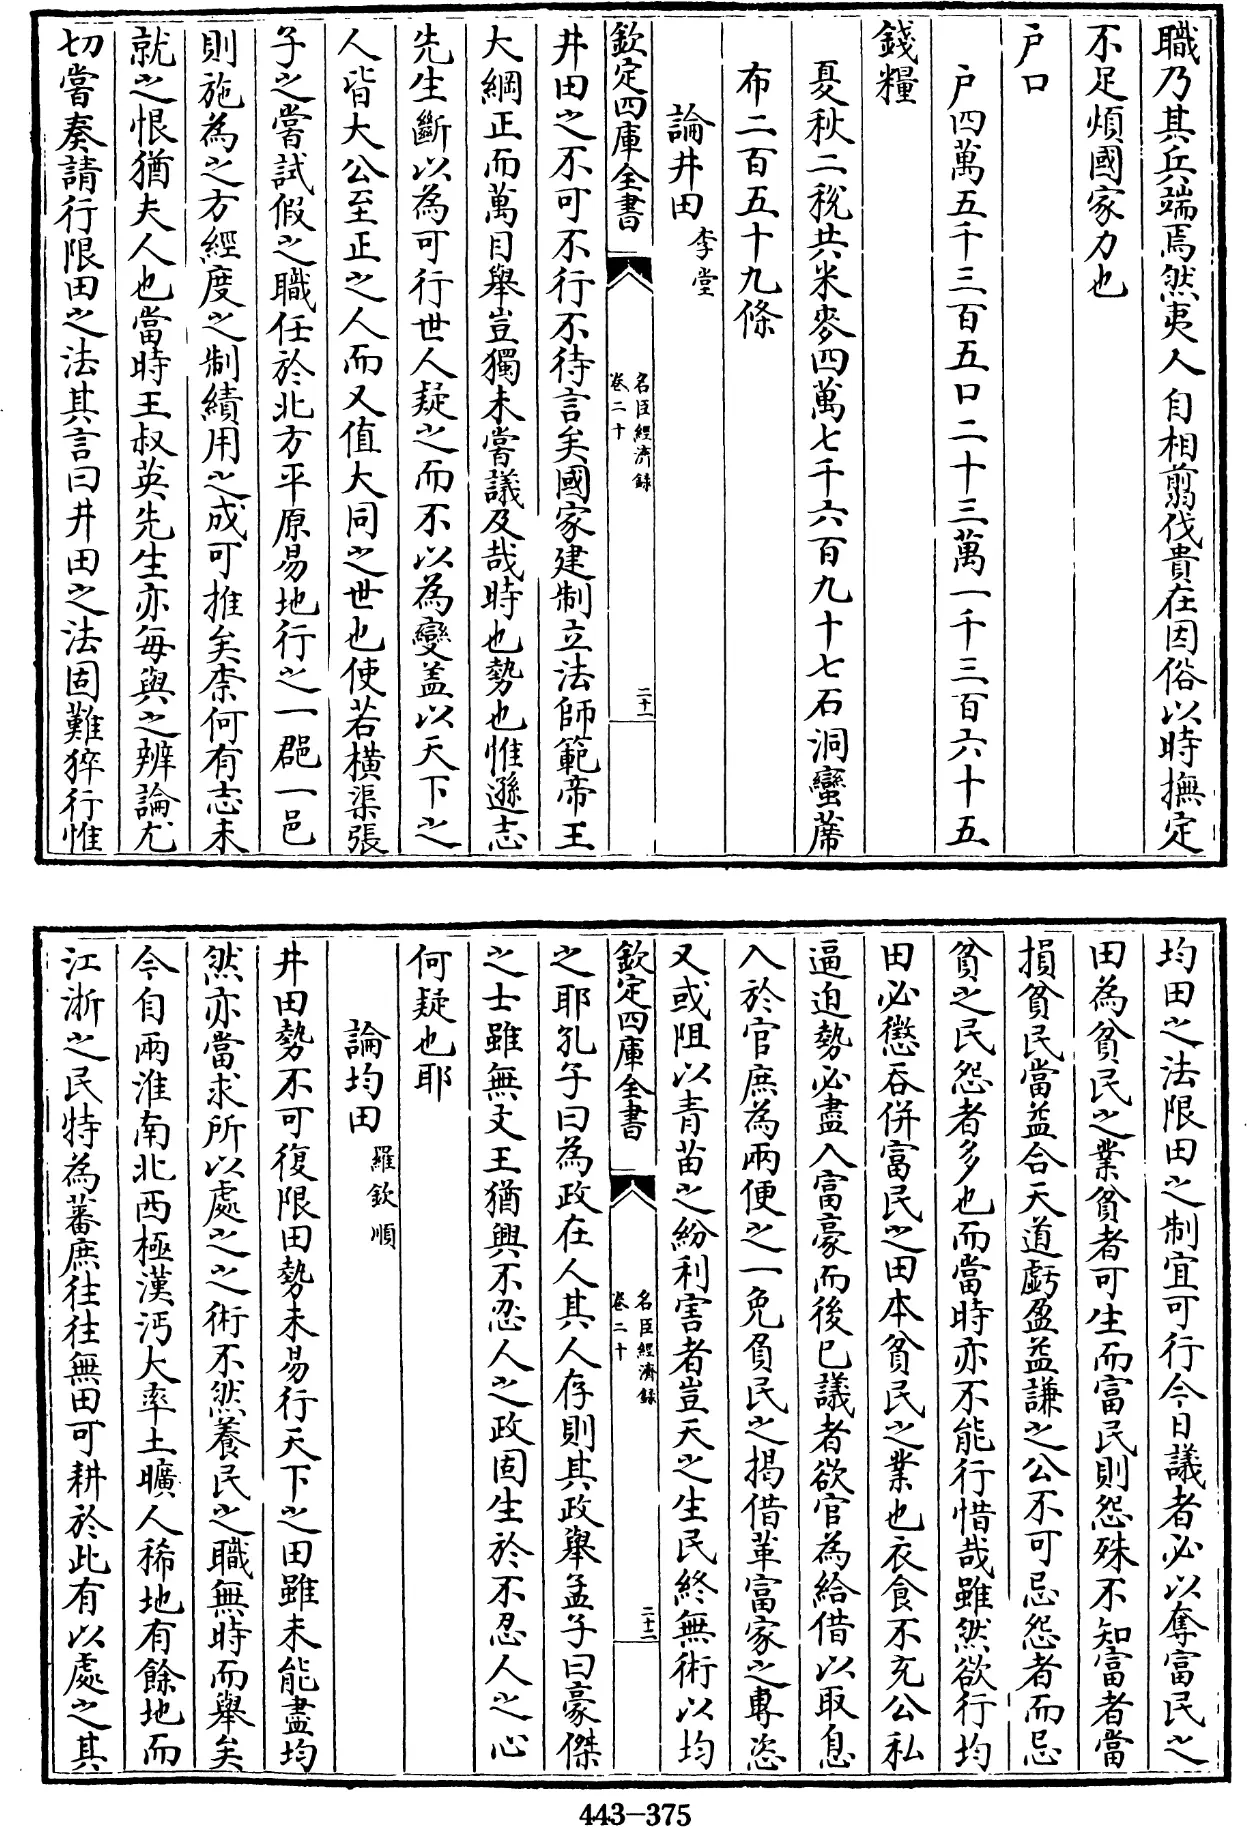 職乃其兵端焉然夷人自相翦伐貴在因俗以時撫定
不足煩國家力也
戶口
戶四萬五千三百五口二十三萬一千三百六十五
錢糧
夏秋二稅共米麥四萬七千六百九十七石洞蠻蓆
布二百五十九條
論井田 李堂
欽定四庫全書 名臣經濟錄 卷二十 二十一
井田之不可不行不待言矣國家建制立法師範帝王
大綱正而萬目舉豈獨未嘗議及哉時也勢也惟遜志
先生斷以為可行世人疑之而不以為變蓋以天下之
人皆大公至正之人而又值大同之世也使若橫渠張
子之嘗試假之職任於北方平原易地行之一郡一邑
則施為之方經度之制績用之成可推矣柰何有志未
就之恨猶夫人也當時王叔英先生亦每與之辨論尤
切嘗奏請行限田之法其言曰井田之法固難猝行惟
均田之法限田之制宜可行今日議者必以奪富民之
田為貧民之業貧者可生而富民則怨殊不知富者當
損貧民當益合天道虧盈益謙之公不可忌怨者而忌
貧之民怨者多也而當時亦不能行惜哉雖然欲行均
田必懲吞併富民之田本貧民之業也衣食不充公私
逼迫勢必盡入富豪而後已議者欲官為給借以取息
入於官庶為兩便之一免貧民之揭借革富家之專恣
又或阻以青苗之紛利害者豈天之生民終無術以均
欽定四庫全書 名臣經濟錄 卷二十 二十二
之耶孔子曰為政在人其人存則其政舉孟子曰豪傑
之士雖無文王猶興不忍人之政固生於不忍人之心
何疑也耶
論均田 羅欽順
井田勢不可復限田勢未易行天下之田雖未能盡均
然亦當求所以處之之術不然養民之職無時而舉矣
今自兩淮南北西極漢沔大率土曠人稀地有餘地而
江浙之民特為蕃庶往往無田可耕於此有以處之其
443-375